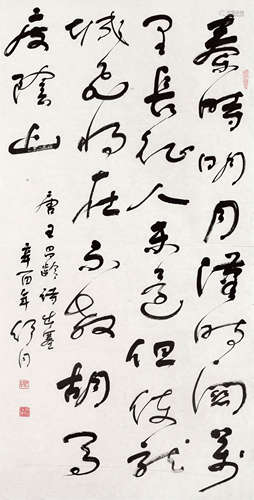 秦時明月漢時關萬
里長征人未還但使龍
城飛將在不教胡馬
度陰山
唐王昌齡詩出塞
辛酉年舒同